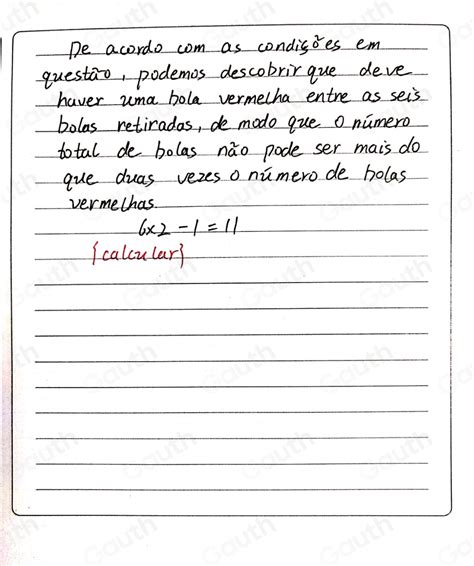 De acordo com as condições em
questão, podemos descobrir que deve
haver uma bola vermelha entre as seis
bolas retiradas, de modo que o número
total de bolas não pode ser mais do
que duas vezes o número de bolas
vermelhas.
6x2-1=11
{calcular}